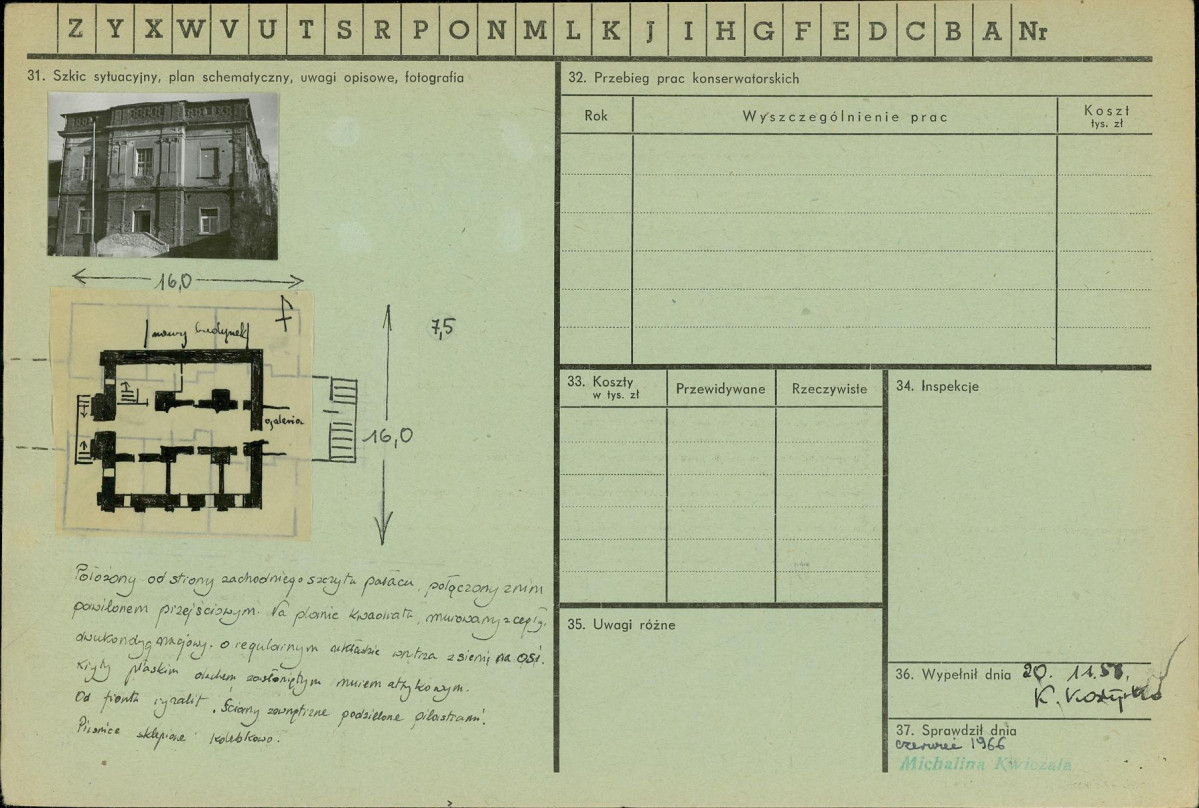 Z Y X W V U T S R P O N M L K J I H G F E D C B A Nr
31. Szkic sytuacyjny, plan schematyczny, uwagi opisowe, fotografia
16,0
nowy budynek
galeria
7,5
16,0
Położony od strony zachodniego szczytu pałacu, połączony z nim
pawilonem przejściowym. Na planie kwadratu, murowany z cegły,
dwukondygnacjowy, o regularnym układzie wnętrza z sienią na osi.
Kryty płaskim dachem zasłoniętym murem attykowym.
Od frontu ryzalit. Ściany zewnętrzne podzielone pilastrami.
Piwnice sklepione kolebkowo.
32. Przebieg prac konserwatorskich
Rok
Wyszczególnienie prac
Koszt
tys. zł
33. Koszty
w tys. zł
Przewidywane
Rzeczywiste
34. Inspekcje
35. Uwagi różne
36. Wypełnił dnia 20. 11.58,
K.
37. Sprawdził dnia
czerwiec 1966
Michalina Kwiczala